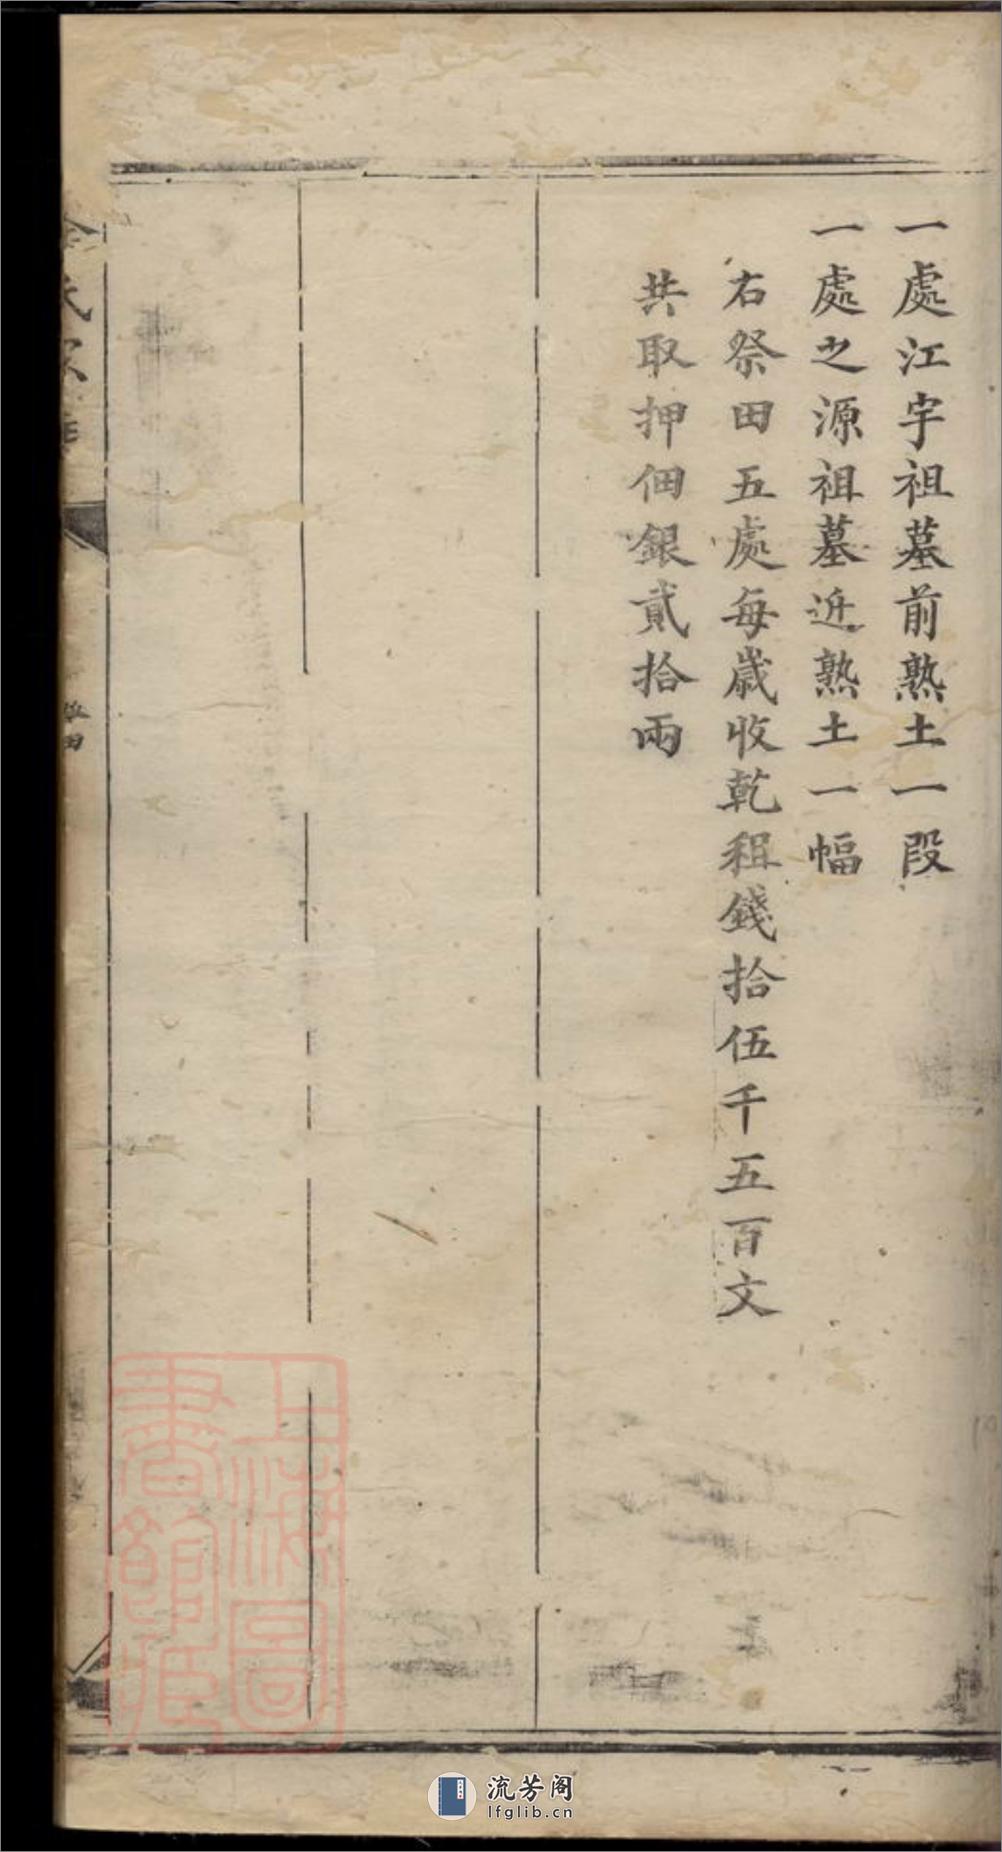 一處江宇祖墓前熟土一段
一處之源祖墓近熟土一幅
右祭田五處每歲收乾租錢拾伍千五百文
共取押佃銀貳拾兩
上海圖
書館
流芳阁
lfglib.cn